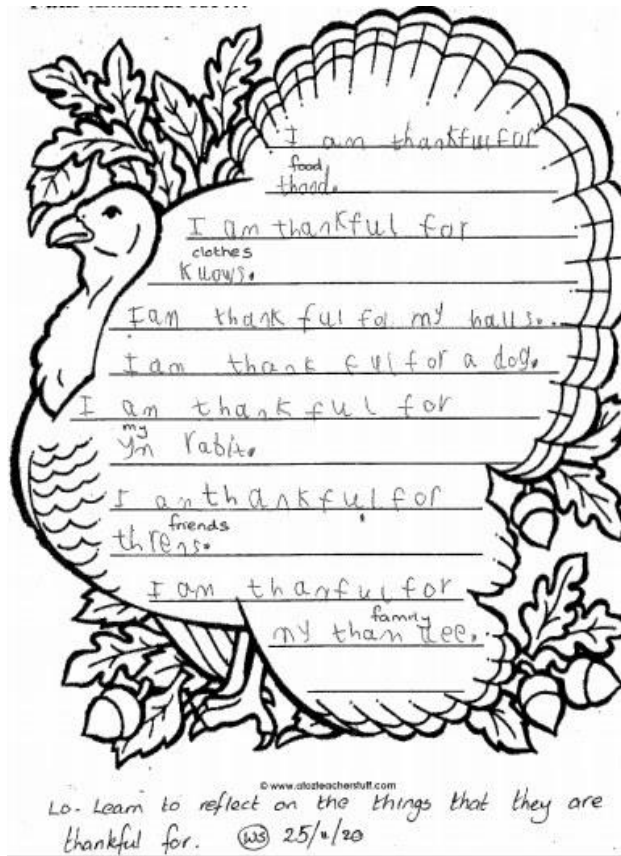 I am thankful for
food
thood.
I am thankful for
clothes
kuows.
I am thank ful for my halls.
I am thank ful for a dog.
I am thank ful for
my
yn rabit.
I an thankful for
friends
threns.
I am thanful for
family
my than dee.
© www.atozteacherstuff.com
Lo - Learn to reflect on the things that they are
thankful for. WS 25/11/20